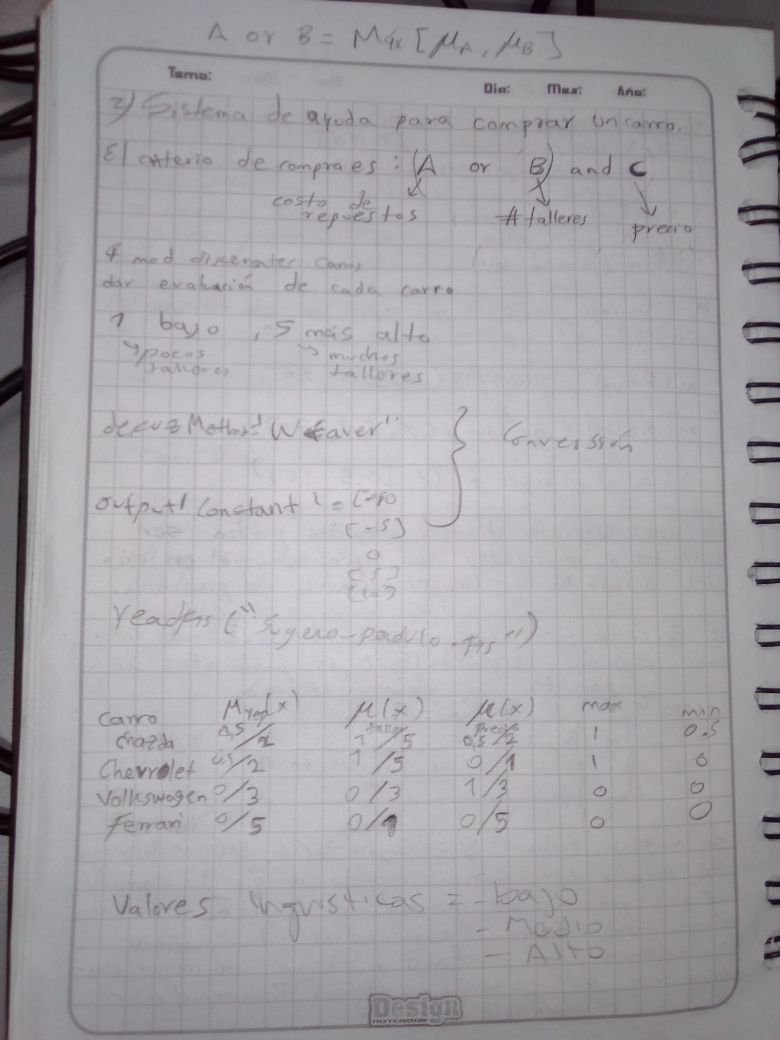 A or B = Máx [μA, μB]
Tema: Dia: Mes: Año:
2) Sistema de ayuda para comprar un carro.
El criterio de compra es: (A or B) and C
costo de repuestos # talleres precio
4 mod diferentes
dar evaluación de cada carro
1 bajo, 5 más alto
↳ pocos talleres ↳ muchos talleres
Method "Weaver" } Conversión
output 'Constant' = [-10
[-5]
0
[5]
[10]
readfis ("
Carro μrep(x) μ(x) taller μ(x) Precio max min
mazda 0,5/2 1/5 0,5/2 1 0.5
Chevrolet 0,5/2 1/5 0/1 1 0
Volkswagen 0/3 0/3 1/3 0 0
Ferrari 0/5 0/1 0/5 0 0
Valores linguisticas = - bajo
- Medio
- Alto
Design
NOTEBOOK